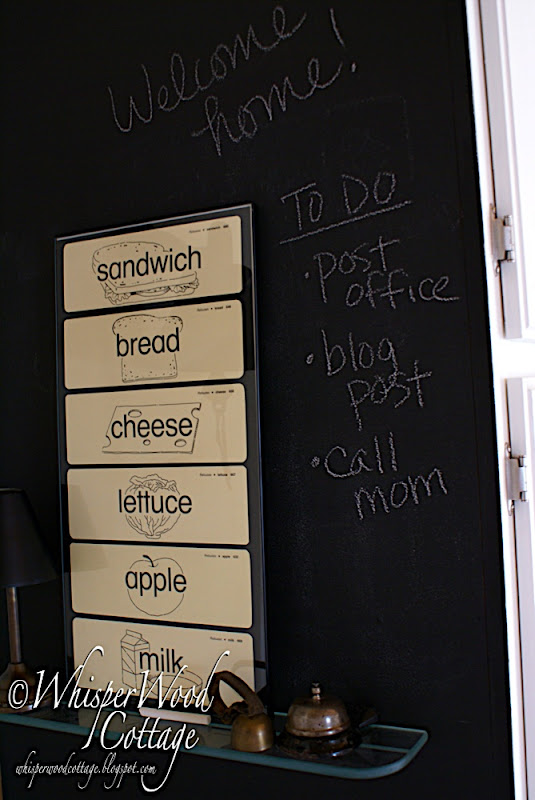 Welcome
home!
To Do
• post
office
• blog
post
• call
mom
sandwich
bread
cheese
lettuce
apple
milk
© WhisperWood
Cottage
whisperwoodcottage.blogspot.com